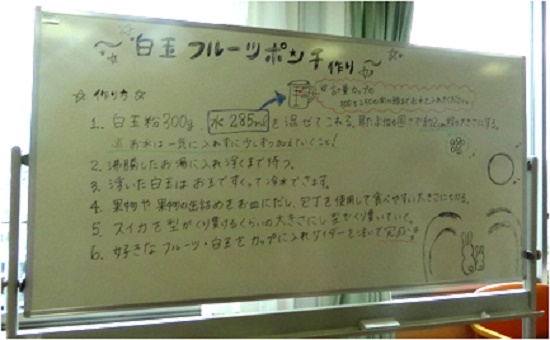 白玉フルーツポンチ作り
☆ 作り方 ☆
計量カップの
1. 白玉粉300g、水 285mlを混ぜてこねる。耳たぶ位の固さで約2cm程の大きさにする。
お水は一気に入れずに少しずつ加えていくこと!
2. 沸騰したお湯に入れ浮くまで待つ。
3. 浮いた白玉はお玉ですくって冷水でさます。
4. 果物や果物の缶詰めをお皿にだし、包丁を使用して食べやすい大きさにきる。
5. スイカを型がくり貫けるくらいの大きさにし型をくり貫いていく。
6. 好きなフルーツ・白玉をカップに入れサイダーを注いで完成!